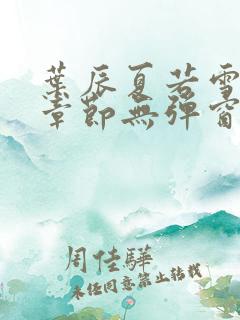 葉辰夏若雪
章節無彈窗
周佳驊
未經同意禁止轉載